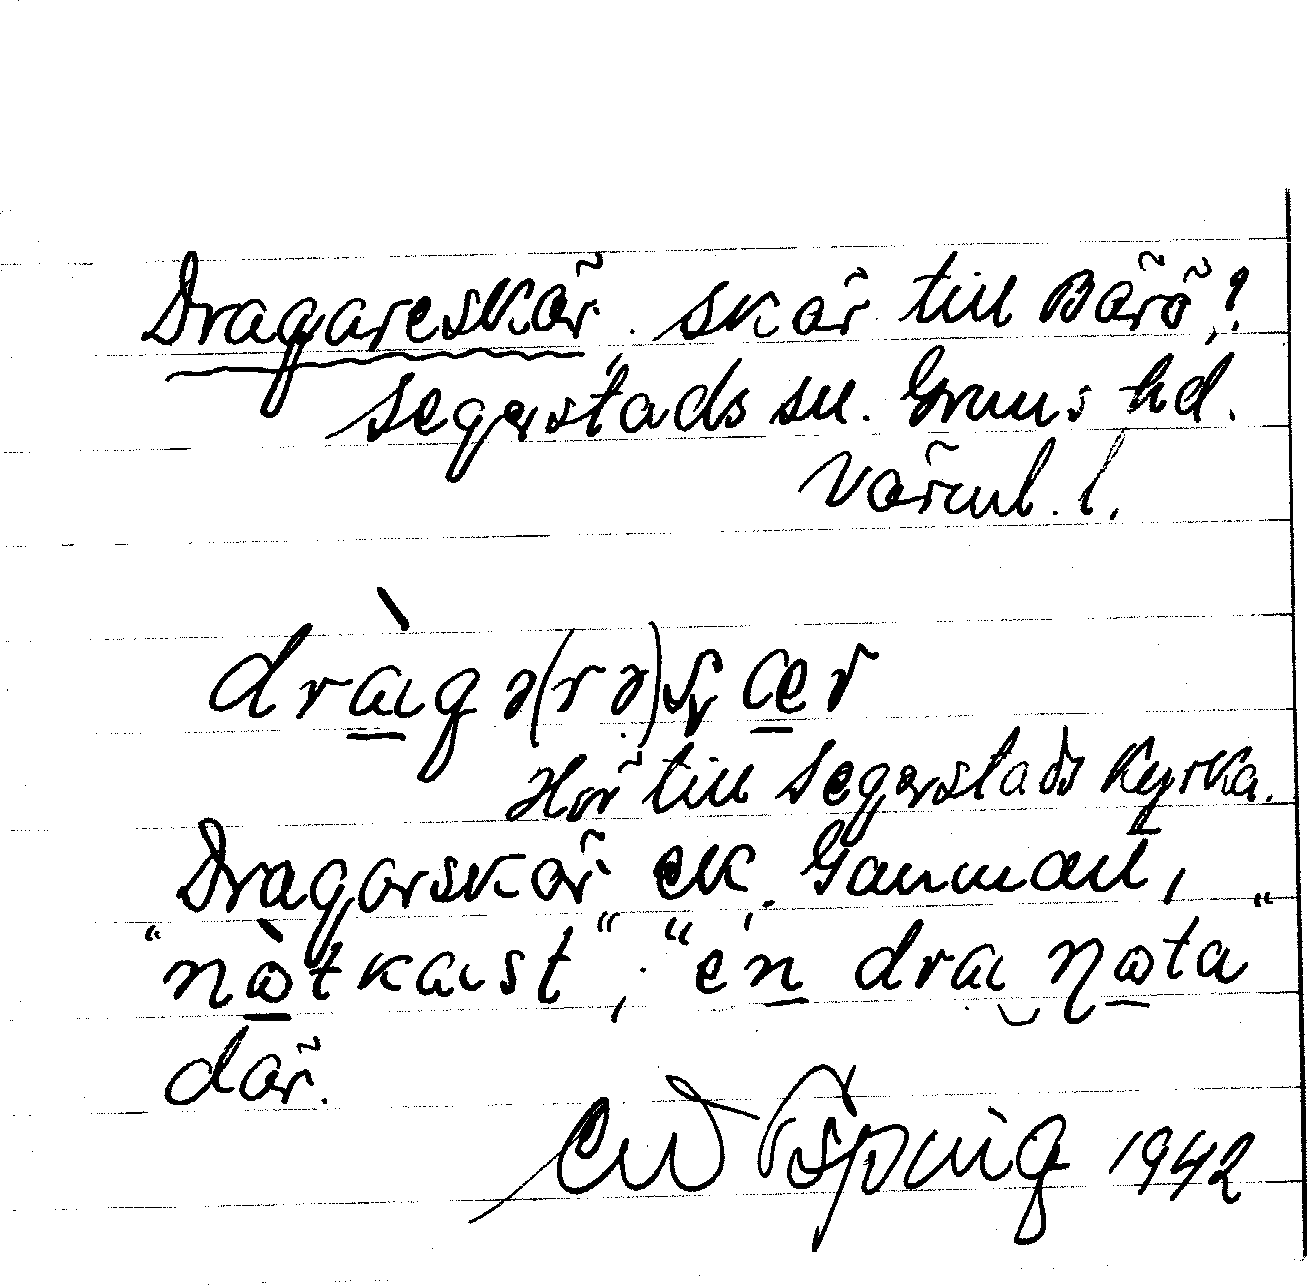 Dragareskär. skär till Bärö?,
Segerstads sn. Grums hd.
Värml. l.
dràgə(rə)ʂær
Hör till Segerstads kyrka.
Dragarskär ek. Ganman,
"nòtkast"; "én dra nota"
där.
1942